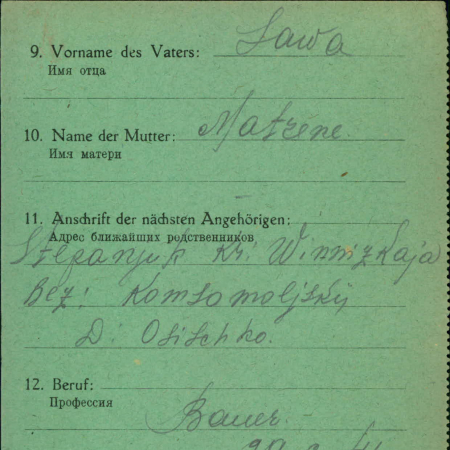 9. Vorname des Vaters: Sawa
Имя отца
10. Name der Mutter: Matrene
Имя матери
11. Anschrift der nächsten Angehörigen:
Адрес ближайших родственников
Stepanjuk Kr: Winnizkaja
Bez: Komsomoljskij
D: Osischko.
12. Beruf:
Профессия
Bauer